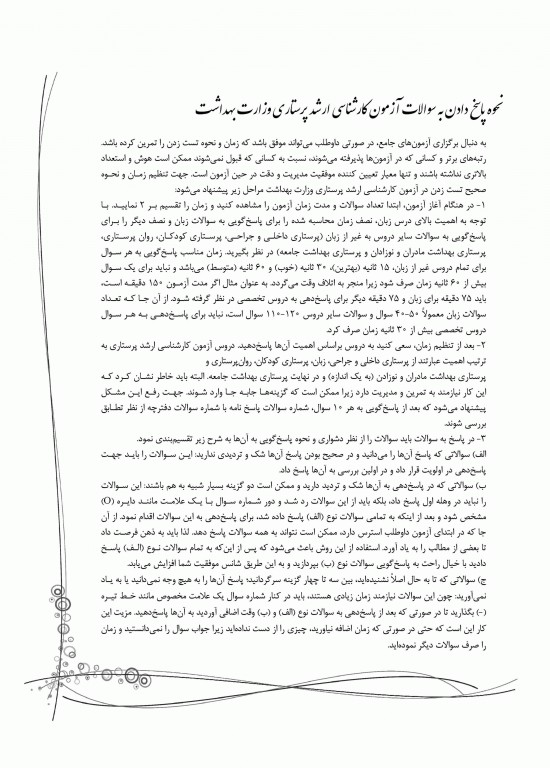 نحوه پاسخ دادن به سوالات آزمون کارشناسی ارشد پرستاری وزارت بهداشت
به دنبال برگزاری آزمون‌های جامع، در صورتی داوطلب می‌تواند موفق باشد که زمان و نحوه تست زدن را تمرین کرده باشد.
رتبه‌های برتر و کسانی که در آزمون‌ها پذیرفته می‌شوند، نسبت به کسانی که قبول نمی‌شوند ممکن است هوش و استعداد
بالاتری نداشته باشند و تنها معیار تعیین کننده موفقیت مدیریت و دقت در حین آزمون است. جهت تنظیم زمـان و نحـوه
صحیح تست زدن در آزمون کارشناسی ارشد پرستاری وزارت بهداشت مراحل زیر پیشنهاد می‌شود:
۱- در هنگام آغاز آزمون، ابتدا تعداد سوالات و مدت زمان آزمون را مشاهده کنید و زمان را تقسیم بـر ۲ نمایـد. بـا
توجه به اهمیت بالای درس زبان، نصف زمان محاسبه شده را برای پاسخ‌گویی به سوالات زبان و نصف دیگر را بـرای
پاسخ‌گویی به سوالات سایر دروس به غیر از زبان (پرستاری داخلـی و جراحـی، پرسـتاری کودکـان، روان پرسـتاری،
پرستاری بهداشت مادران و نوزادان و پرستاری بهداشت جامعه) در نظر بگیرید. زمان مناسب پاسخ‌گویی به هر سـوال
برای تمام دروس غیر از زبان، ۱۵ ثانیه (بهترین)، ۳۰ ثانیه (خوب) و ۶۰ ثانیه (متوسط) می‌باشد و نباید برای یک سـوال
بیش از ۶۰ ثانیه زمان صرف شود زیرا منجر به اتلاف وقت می‌گردد. به عنوان مثال اگر مدت آزمـون ۱۵۰ دقیقـه اسـت،
باید ۷۵ دقیقه برای زبان و ۷۵ دقیقه دیگر برای پاسخ‌دهی به دروس تخصصی در نظر گرفته شـود. از آن جـا کـه تعـداد
سوالات زبان معمولاً ۵۰-۴۰ سوال و سوالات سایر دروس ۱۲۰-۱۱۰ سوال است، نباید برای پاسـخ‌دهـی بـه هـر سـوال
دروس تخصصی بیش از ۳۰ ثانیه زمان صرف کرد.
۲- بعد از تنظیم زمان، سعی کنید به دروس براساس اهمیت آن‌ها پاسخ‌دهید. دروس آزمون کارشناسی ارشد پرستاری به
ترتیب اهمیت عبارتند از پرستاری داخلی و جراحی، زبان، پرستاری کودکان، روان‌پرستاری و
پرستاری بهداشت مادران و نوزادان (به یک اندازه) و در نهایت پرستاری بهداشت جامعه. البته باید خاطر نشـان کـرد کـه
این کار نیازمند به تمرین و مدیریت دارد زیرا ممکن است که گزینه‌هـا جابـه جـا وارد شـوند. جهـت رفـع ایـن مشـکل
پیشنهاد می‌شود که بعد از پاسخ‌گویی به هر ۱۰ سوال، شماره سوالات پاسخ نامه با شماره سوالات دفترچه از نظر تطـابق
بررسی شوند.
۳- در پاسخ به سوالات باید سوالات را از نظر دشواری و نحوه پاسخ‌گویی به آن‌ها به شرح زیر تقسیم‌بندی نمود.
الف) سوالاتی که پاسخ آن‌ها را می‌دانید و در صحیح بودن پاسخ آن‌ها شک و تردیدی ندارید: ایـن سـوالات را بایـد جهـت
پاسخ‌دهی در اولویت قرار داد و در اولین بررسی به آن‌ها پاسخ داد.
ب) سوالاتی که در پاسخ‌دهی به آن‌ها شک و تردید دارید و ممکن است دو گزینه بسیار شبیه به هم باشند: این سـوالات
را نباید در وهله اول پاسخ داد، بلکه باید از این سوالات رد شـد و دور شـماره سـوال بـا یـک علامـت ماننـد دایـره (O)
مشخص شود و بعد از اینکه به تمامی سوالات نوع (الف) پاسخ داده شد، برای پاسخ‌دهی به این سوالات اقدام نمود. از آن
جا که در ابتدای آزمون داوطلب استرس دارد، ممکن است نتواند به همه سوالات پاسخ دهد. لذا باید به ذهن فرصـت داد
تا بعضی از مطالب را به یاد آورد. استفاده از این روش باعث می‌شود که پس از این‌که به تمام سوالات نـوع (الـف) پاسـخ
دادید با خیال راحت به پاسخ‌گویی سوالات نوع (ب) بپردازید و به این طریق شانس موفقیت شما افزایش می‌یابد.
ج) سوالاتی که تا به حال اصلاً نشنیده‌اید، بین سه تا چهار گزینه سرگردانید؛ پاسخ آن‌ها را به هیچ وجه نمی‌دانید یا به یـاد
نمی‌آورید: چون این سوالات نیازمند زمان زیادی هستند، باید در کنار شماره سوال یک علامت مخصوص مانند خـط تیـره
(–) بگذارید تا در صورتی که بعد از پاسخ‌دهی به سوالات نوع (الف) و (ب) وقت اضافی آوردید به آن‌ها پاسخ‌دهید. مزیت این
کار این است که حتی در صورتی که زمان اضافه نیاورید، چیزی را از دست نداده‌اید زیرا جواب سوال را نمی‌دانستید و زمان
را صرف سوالات دیگر نموده‌اید.